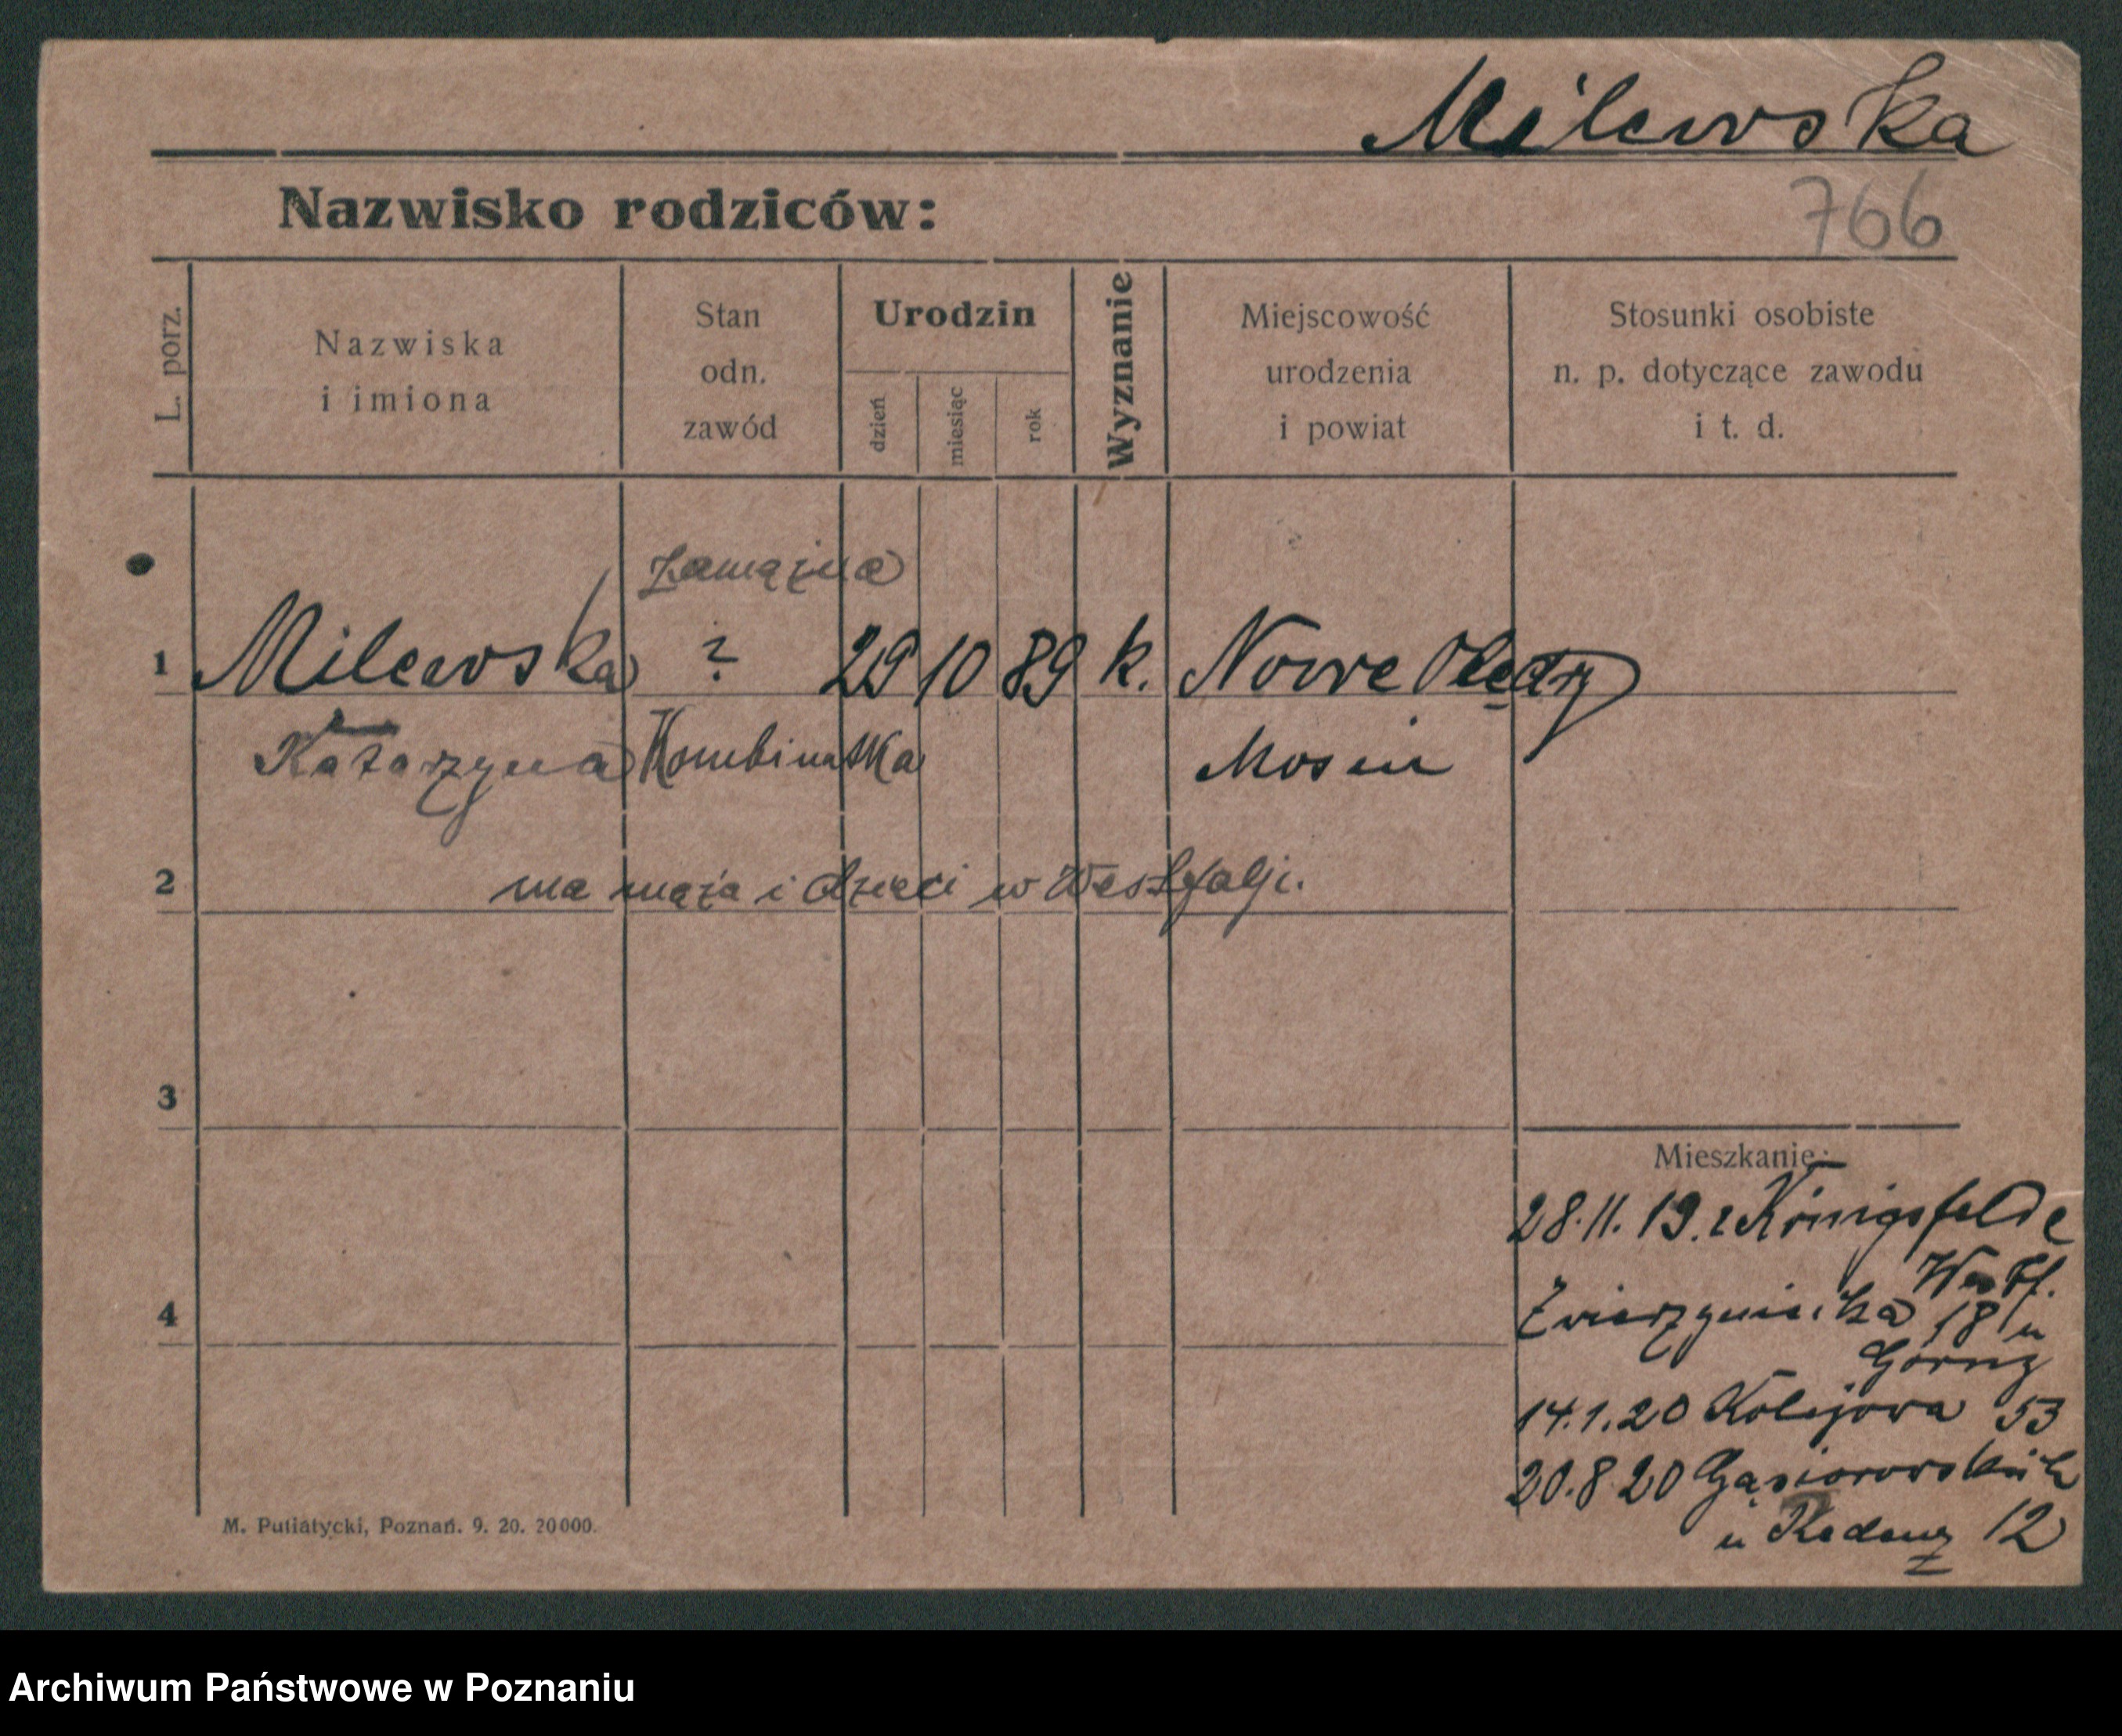 Milewska
Nazwisko rodziców:
766
L. porz.
Nazwiska
i imiona
Stan
odn.
zawód
Urodzin
dzień
miesiąc
rok
Wyznanie
Miejscowość
urodzenia
i powiat
Stosunki osobiste
n. p. dotyczące zawodu
i t. d.
zamężna
1 Milewska ? 29 10 89 k. Nowe Olędry
Katarzyna Mosin
2 ma męża i dzieci w Westfalji.
3
Mieszkanie:
28.11.19. z Königsfelde
Westf.
4
Zwierzyniecka 18 u
Górny
14.1.20 Kolejowa 53
20.8.20 Gąsiorowskich
u 12
M. Putiatycki, Poznań. 9. 20. 20000.
Archiwum Państwowe w Poznaniu